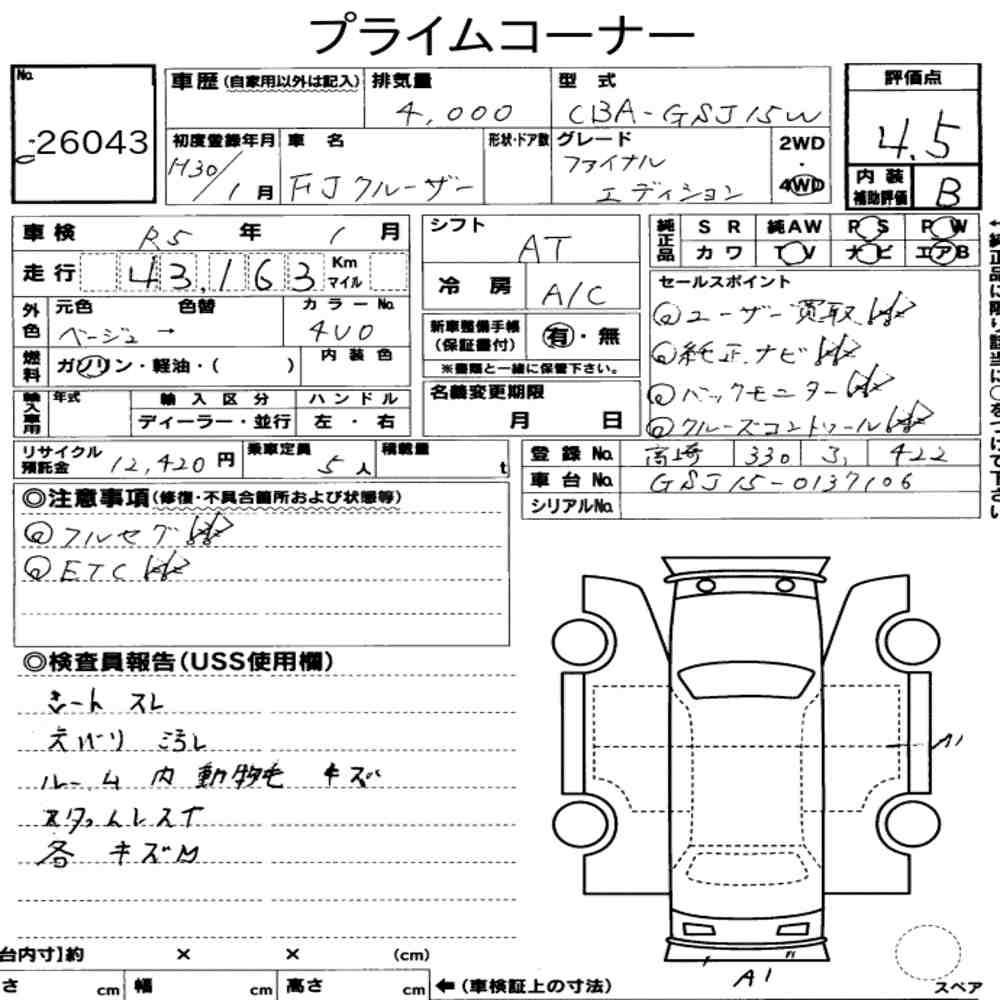 プライムコーナー
No.
-26043
車歴(自家用以外は記入)
排気量
4,000
型 式
CBA-GSJ15W
評価点
4.5
初度登録年月
H30/1月
車 名
FJクルーザー
形状・ドア数
グレード
ファイナル
エディション
2WD
・
4WD
内装
補助評価
B
車検 R5 年 1 月
走行 43,163 Km
マイル
シフト
AT
冷 房
A/C
純正品
S R 純AW P S P W
カ ワ T V ナ ビ エアB
外色
元色 色替
ベージュ →
カラーNo.
4V0
燃料
ガソリン・軽油・( )
内装色
新車整備手帳
(保証書付)
有・無
※書類と一緒に保管下さい。
セールスポイント
ユーザー買取
純正ナビ
バックモニター
クルーズコントロール
輸入車用
年式
輸入区分
ディーラー・並行
ハンドル
左・右
名義変更期限
月 日
リサイクル
預託金
12,420 円
乗車定員
5人
積載量
t
登録No. 高崎 330 3, 422
車台No. GSJ15-0137106
シリアルNo.
◎注意事項(修復・不具合箇所および状態等)
フルセグ
ETC
◎検査員報告(USS使用欄)
シート スレ
天バリ ヨゴレ
ルーム内 動物毛 キズ
各 キズM
A1
A1
台内寸】約 × × (cm)
さ cm 幅 cm 高さ cm
←(車検証上の寸法)
スペア